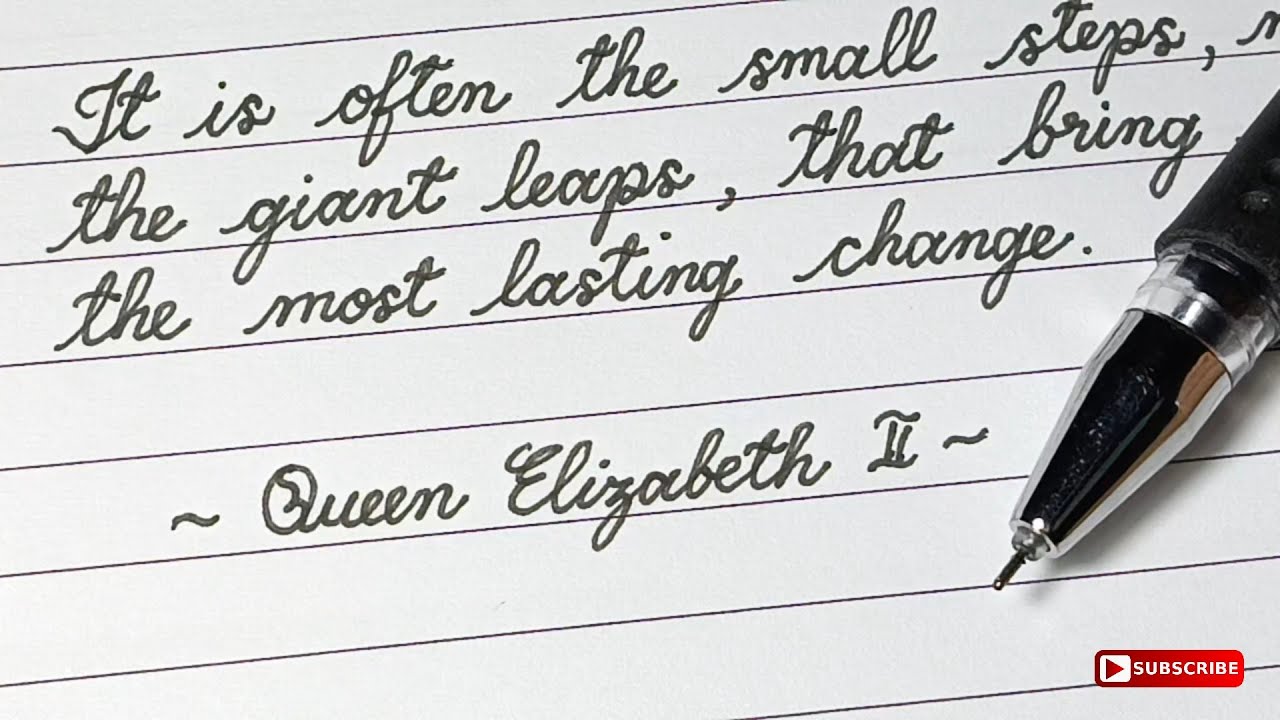 It is often the small steps,
the giant leaps, that bring
the most lasting change.
~ Queen Elizabeth II ~
SUBSCRIBE